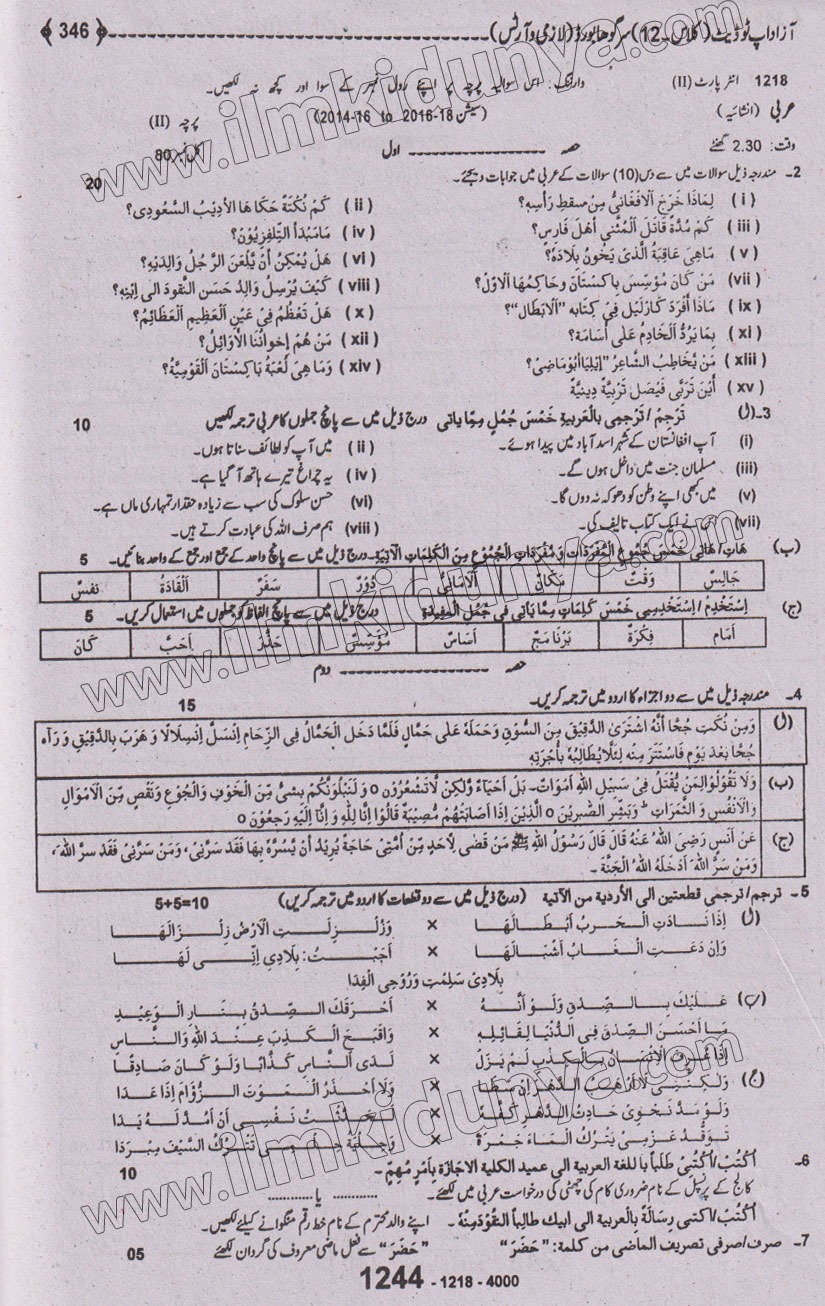 آزاد اپ ٹو ڈیٹ (کلاس۔12) سرگودھا بورڈ (لازمی و آرٹس) ﴿346﴾
1218 انٹر پارٹ (II) وارننگ: اس سوالیہ پرچہ پر اپنے رول نمبر کے سوا اور کچھ نہ لکھیں۔
عربی (انشائیہ) (سیشن 18-2016 to 16-2014) پرچہ (II)
وقت: 2.30 گھنٹے حصہ اول کل نمبر 80
2۔ مندرجہ ذیل سوالات میں سے دس (10) سوالات کے عربی میں جوابات دیجئے۔ 20
(i) لِمَاذَا خَرَجَ الْاَفْغَانِیُّ مِنْ مسقطِ رَأْسِهٖ؟ (ii) كَمْ نُكْتَةً حَكَا هَا الأدِيْبُ السَّعُوْدِى؟
(iii) كَمْ مُدَّةً قَاتَلَ الْمُثَنّٰى اَهْلَ فَارِس؟ (iv) مَامَبْدَأُ التِّلِفِزْيُوْنِ؟
(v) مَاهِىَ عَاقِبَةُ الَّذِىْ يَخُونُ بِلَادَهٗ؟ (vi) هَلْ يُمْكِنُ أَنْ يَّلْعَنَ الرَّجُلُ وَالِدَيْهِ؟
(vii) مَن كَانَ مُؤَسِّسَ بَاكِسْتَانَ وَحَاكِمُهَا الْاَوَّلُ؟ (viii) كَيْفَ يُرْسِلُ وَالِدُ حَسَن النُّقُودَ الى اِبْنِهٖ؟
(ix) مَاذَا أَفْرَدَ كَارْلَيْل فِىْ كِتَابِهٖ “الْاَبْطَال”؟ (x) هَلْ تَعْظُمُ فِىْ عَيْنِ الْعَظِيمِ الْعَظَائِمُ؟
(xi) بِمَا يَرُدُّ الْخَادِمُ عَلٰى أُسَامَةَ؟ (xii) مَنْ هُمْ إخوَانُنَا الْأَوَائِلُ؟
(xiii) مَنْ يُّخَاطِبُ الشَّاعِرُ “إِيْلِيَا أَبُوْمَاضِىْ؟ (xiv) وَمَا هِىَ لُعْبَةُ بَاكِسْتَانَ الْقَوْمِيَّةُ؟
(xv) أَيْنَ تَرَبّٰى فَيْصَل تَرْبِيَّةً دِينِيَّةً
3۔(ا) تَرْجِمْ / تَرْجِمِى بِالْعَرَبِيةِ خَمْسَ جُمَلٍ مِمَّا ياتى درج ذیل میں سے پانچ جملوں کا عربی ترجمہ لکھیں 10
(i) آپ افغانستان کے شہر اسد آباد میں پیدا ہوئے۔ (ii) میں آپ کو لطائف سناتا ہوں۔
(iii) مسلمان جنت میں داخل ہوں گے۔ (iv) یہ چراغ تیرے ہاتھ آ گیا ہے۔
(v) میں بھی اپنے وطن کو دھوکہ نہ دوں گا۔ (vi) حسن سلوک کی سب سے زیادہ حقدار تمہاری ماں ہے۔
(vii) نے ایک کتاب تالیف کی۔ (viii) ہم صرف اللہ کی عبادت کرتے ہیں۔
(ب) هَاتِ/هَاتِى خَمْسَ جُمُوعِ الْمُفْرَدَاتِ وَمُفْرَدَاتِ الْجُمُوْعِ مِنَ الْكَلِمَاتِ الْاٰتِيَةِ۔ درج ذیل میں سے پانچ واحد کے جمع اور جمع کے واحد بنائیں۔ 5
جَالِسٌ وَقْتٌ مَكَانٌ دُوَرٌ سَفَرٌ اَلْقَادَةُ نَفْسٌ
(ج) اِسْتَخْدِمْ/اِسْتَخْدِمِى خَمْسَ كَلِمَاتٍ مِمَّا يَاتِى فِى جُمَلِ الْمُفِيدَةِ درج ذیل میں سے پانچ الفاظ کو جملوں میں استعمال کریں۔ 5
أَمَام فِكْرَةٌ بَرْنَامَجٌ اَسَاسٌ مُؤَسِّسٌ حَذَّرَ اَحَبَّ كَانَ
حصہ دوم
4۔ مندرجہ ذیل میں سے دو اجزاء کا اردو میں ترجمہ کریں۔ 15
(ا) وَمِنْ نُكَتِ جُحَا أَنَّهُ اشْتَرَىٰ الدَّقِيْقَ مِنَ السُّوْقِ وَحَمَلَهٗ عَلٰى حَمَّالٍ فَلَمَّا دَخَلَ الْحَمَّالُ فِى الزِّحَامِ اِنْسَلَّ اِنْسِلَالًا وَ هَرَبَ بِالدَّقِيْقِ وَ رَآهُ
جُحَا بَعْدَ يَوْمٍ فَاسْتَتَرَ مِنْهُ لِئَلَّا يُطَالِبُهٗ بِأُجْرَتِهِ
(ب) وَلَا تَقُوْلُوْا لِمَنْ يُّقْتَلُ فِىْ سَبِيْلِ اللّٰهِ اَمْوَاتٌ۔ بَلْ اَحْيَاءٌ وَّلٰكِنْ لَّاتَشْعُرُوْنَ o وَ لَنَبْلُوَنَّكُمْ بِشَىْءٍ مِّنَ الْخَوْفِ وَالْجُوْعِ وَنَقْصٍ مِّنَ الْاَمْوَالِ
وَالْاَنْفُسِ وَ الثَّمَرَاتِ ط وَبَشِّرِ الصّٰبِرِيْنَ o الَّذِيْنَ اِذَا اَصَابَتْهُمْ مُّصِيْبَةٌ قَالُوْا اِنَّا لِلّٰهِ وَ اِنَّا اِلَيْهِ رٰجِعُوْنَ o
(ج) عَنْ اَنَسٍ رَضِىَ اللّٰهُ عَنْهُ قَالَ قَالَ رَسُوْلُ اللّٰهِ ﷺ مَنْ قَضٰى لِاَحَدٍ مِّنْ اُمَّتِىْ حَاجَةً يُرِيْدُ اَنْ يَّسُرَّهٗ بِهَا فَقَدْ سَرَّنِىْ، وَمَنْ سَرَّنِىْ فَقَدْ سَرَّ اللّٰهَ،
وَمَنْ سَرَّ اللّٰهَ اَدْخَلَهُ اللّٰهُ الْجَنَّةَ ۔
5۔ ترجم/ترجمى قطعتين الى الأردية من الآتية (درج ذیل میں سے دو قطعات کا اردو میں ترجمہ کریں) 5+5=10
(ا) اِذَا نَادَتِ الْحَرْبُ اَبْطَالَهَا × وَزُلْزِلَتِ الْاَرْضُ زِلْزَالَهَا
وَاِنْ دَعَتِ الْغَابُ اَشْبَالَهَا × اَجَبْتُ: بِلَادِىْ اِنِّىْ لَهَا
بِلَادِىْ سَلِمْتِ وَرُوْحِى الْفِدَا
(ب) عَلَيْكَ بِالصِّدْقِ وَلَوْ اَنَّهُ × اَحْرَقَكَ الصِّدْقُ بِنَارِ الْوَعِيْدِ
مَا اَحْسَنَ الصِّدْقَ فِى الدُّنْيَا لِقَائِلِهٖ × وَاَقْبَحَ الْكَذِبَ عِنْدَ اللّٰهِ وَالنَّاسِ
اِذَا عُرِفَ الْاِنْسَانُ بِالْكِذْبِ لَمْ يَزَلْ × لَدَى النَّاسِ كَذَّابًا وَلَوْ كَانَ صَادِقًا
(ج) وَلٰكِنَّنِىْ لَا اَرْهَبُ الدَّهْرَ اِنْ سَطَا × وَلَا اَحْذَرُ الْمَوْتَ الزُّؤَامَ اِذَا عَدَا
وَلَوْ مَدَّ نَحْوِىْ حَادِثُ الدَّهْرِ كَفَّهٗ × لَحَدَّثْتُ نَفْسِىْ اَنْ اَمُدَّ لَهُ يَدَا
تَوَقُّدُ عَزْمِىْ يَتْرُكُ الْمَاءَ جَمْرَةً × وَحِلْيَةُ حِلْمِىْ تَتْرُكُ السَّيْفَ مِبْرَدَا
6۔ اُكْتُبْ/اُكْتُبِىْ طَلَبًا با للغة العربية الى عميد الكلية الاجازة بِاَمرٍ مُهِمٍّ۔
کالج کے پرنسپل کے نام ضروری کام کی چھٹی کی درخواست عربی میں لکھئے۔ 10
............ یا ............
اُكْتُبْ/اكتبى رِسَالَةً بِالعربية الى ابيك طالباً النقودمنه۔ اپنے والد محترم کے نام خط رقم منگوانے کیلئے لکھیں۔
7۔ صرف/صرفى تصريف الماضى من كلمة: “حَضَرَ” “حَضَرَ” سے فعل ماضی معروف کی گردان لکھئے 05
1244 - 1218 - 4000
www.ilmkidunya.com
www.ilmkidunya.com
www.ilmkidunya.com